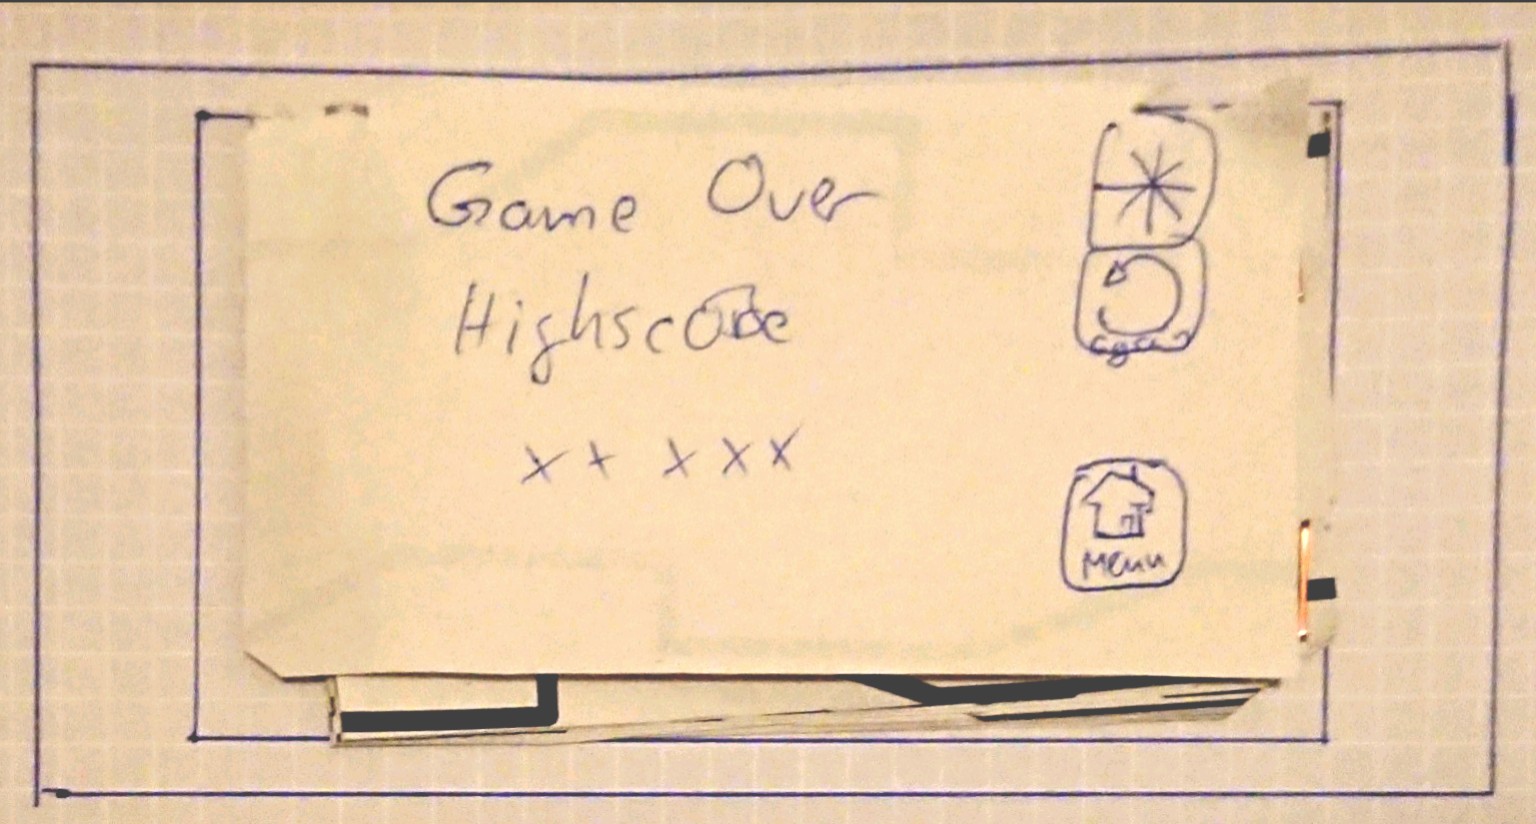 Game Over
Highscore
x x x x x
Menu